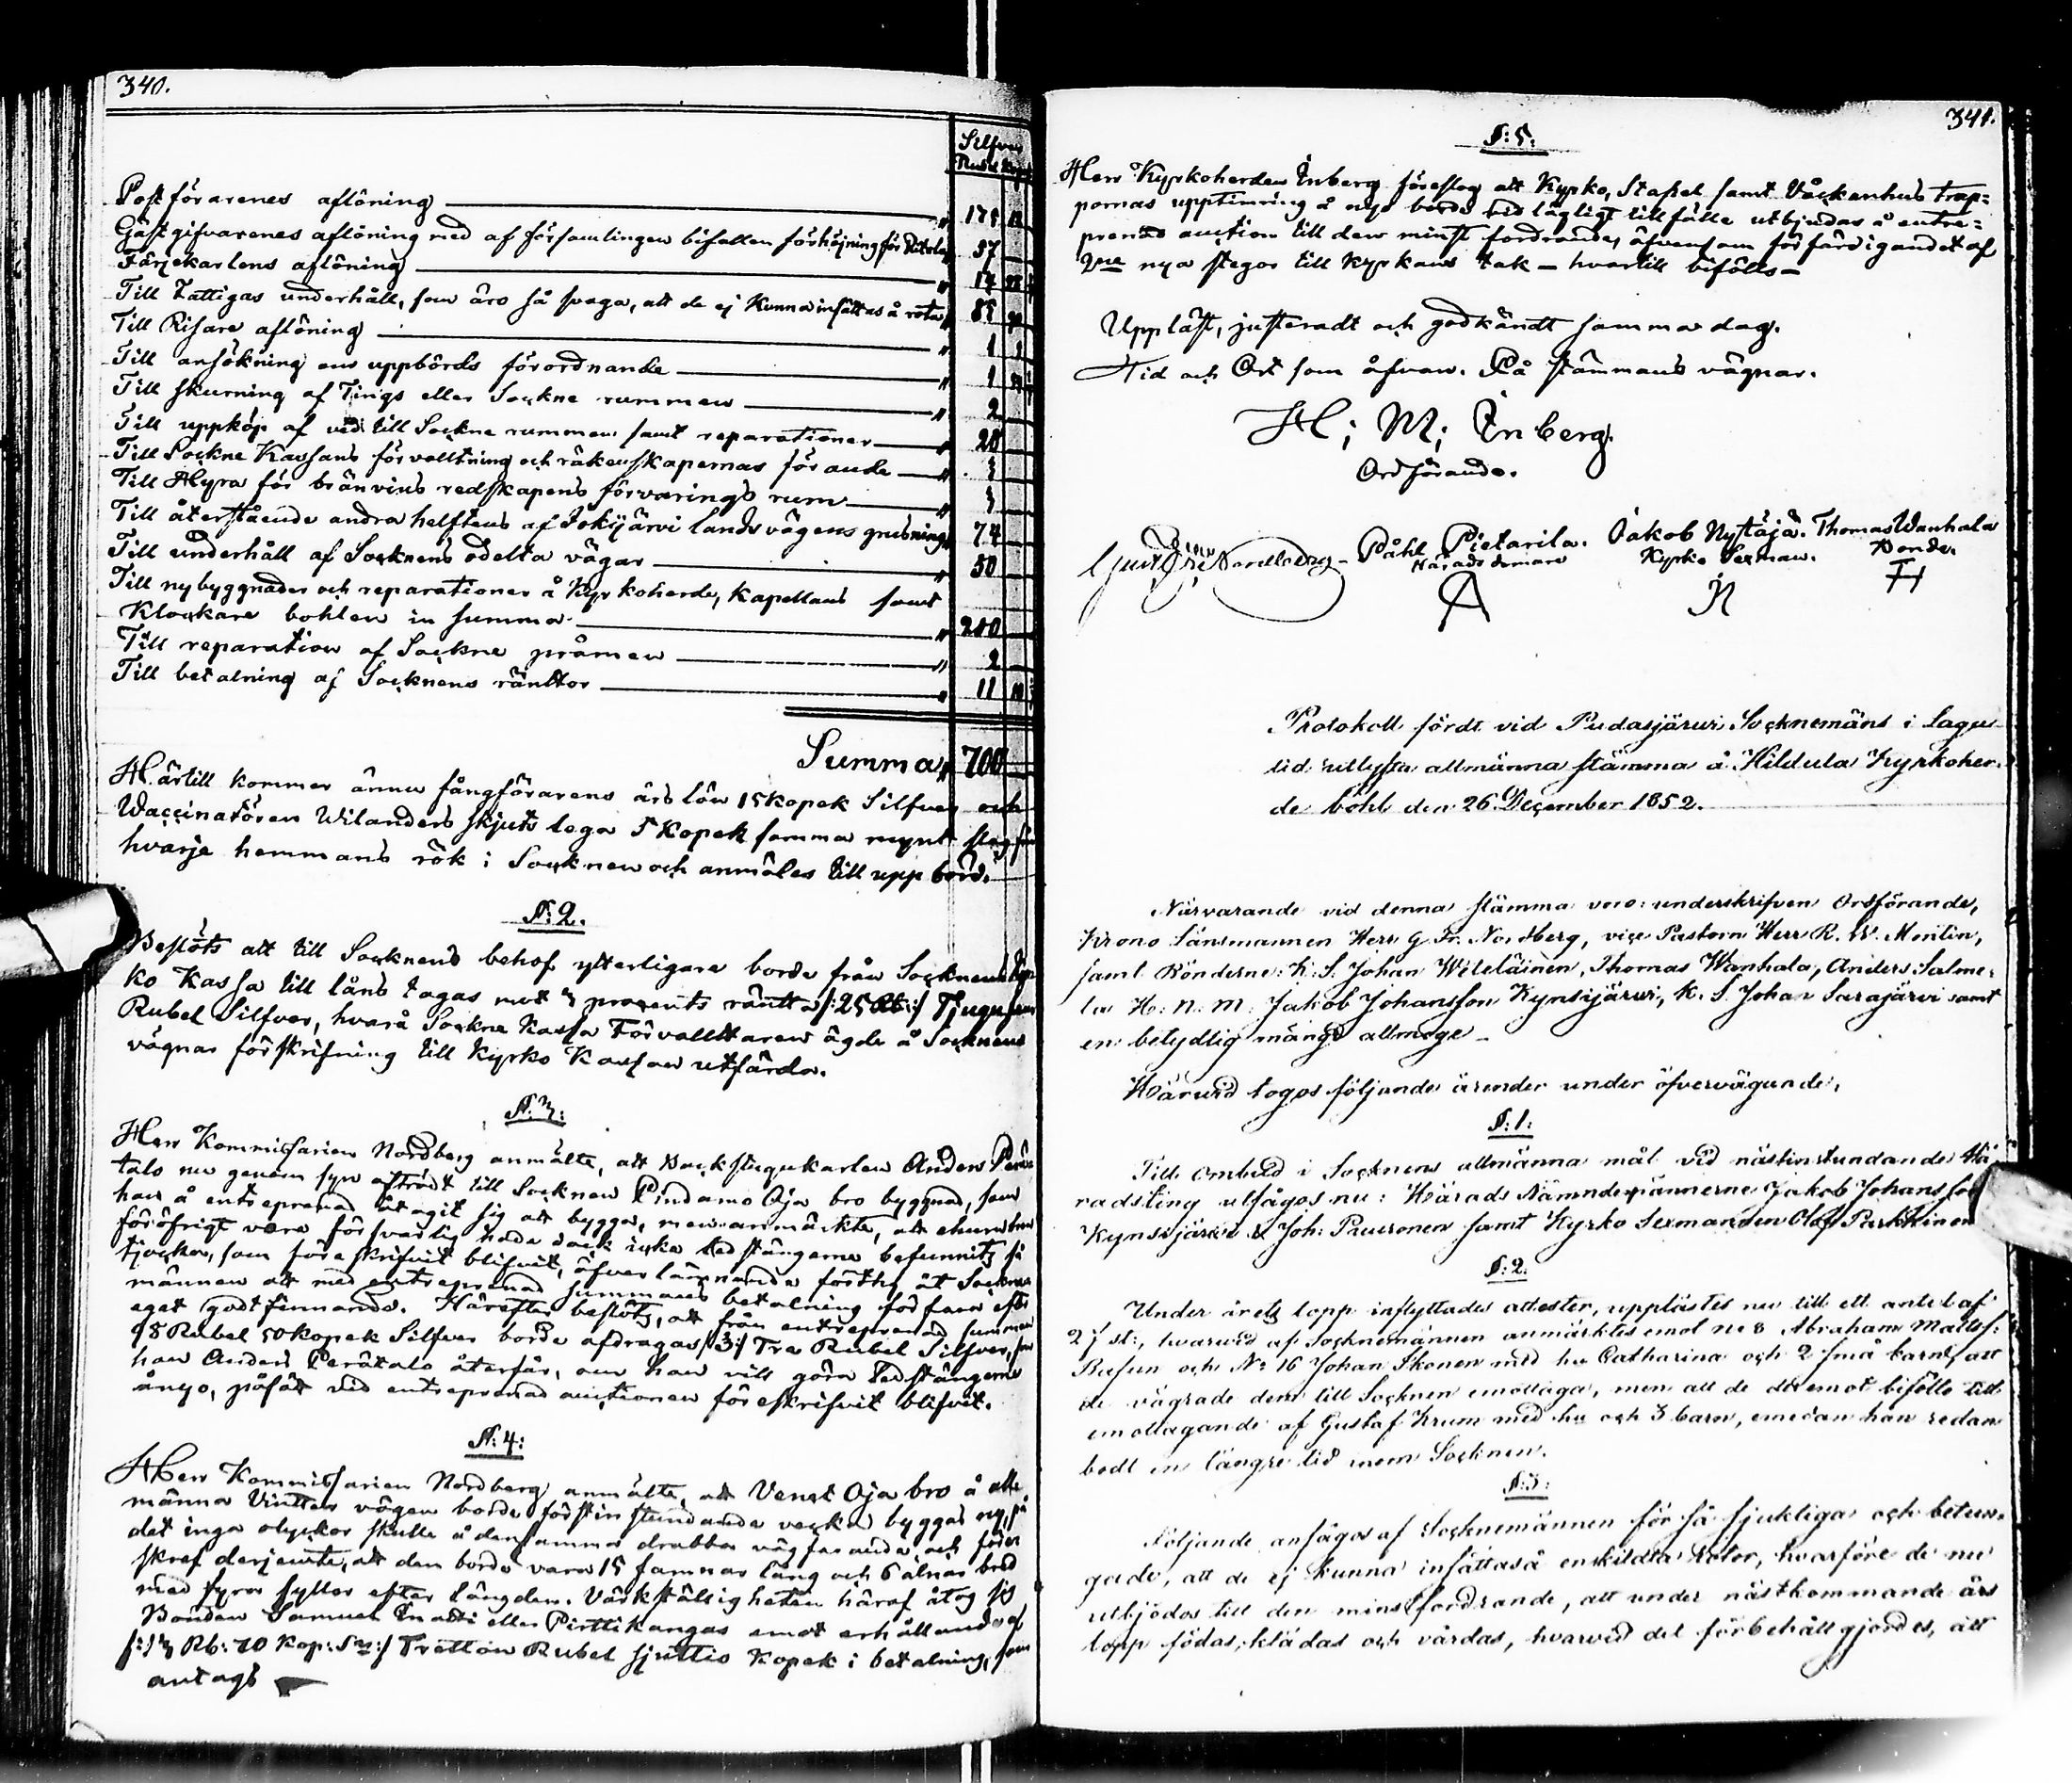 340.
Silfver
Rubel Kop
Postförarenes aflöning "
Gästgifvarenes aflöning med af församlingen bifallen förhöjning för " 57
Färjekarlens aflöning " 17
Till Fattigas underhåll, som äro så svaga, att de ej kunna insättas å rota " 85
Till Risare aflöning " 1
Till ansökning om uppbörds förordnande " 1
Till skurning af Tings eller Sockne rummen " 2
Till uppköp af ved till Sockne rummen samt reparationer " 20
Till Sockne Kassans förvalltning och räkenskapernas förande " 3
Till Hyra för bränvins redskapens förvarings rum " 3
Till återstående andra helftens af Jokijärvi landsvägens grusning " 74
Till underhåll af Socknens odelta vägar " 50
Till nybyggnader och reparationer å Kyrkoherde, Kapellans samt
Klockare bohlen in summa " 200
Till reparation af Sockne pråmen " 2
Till betalning af Socknens ränttor " 11
Summa " 700
Härtill kommer ännu fångförarens års lön 15 kopek Silfver och
Waccinatören Wilanders skjuts lega 5 Kopek samma mynt slag för
hvarje hemmans rök i Socknen och anmäles till uppbörd.
§: 2.
Beslöts att till Socknens behof ytterligare borde från Socknens Kyr
ko Kassa till låns tagas mot 5 procents räntta /: 25 Rb :/ Tjugufem
Rubel Silfver, hvarå Sockne Kassa Förvalltaren ägde å Socknens
vägnar förskrifning till Kyrko Kassan utfärda.
§: 3:
Herr Kommissarien Nordberg anmälte, att Backstugukarlen Anders Perä
talo nu genom syn aftrådt till Socknen Pindamo Oja bro byggnad, som
han å entreprenad åtagit sig att bygga, men anmärkte, att ehuru den
föröfrigt vore försvarlig hade dock icke ledstängerne befunnits så
tjocka, som föreskrifvit blifvit, öfverlämnande förthy åt Sockne
männen att med entreprenad summans betalning förfara efter
eget godtfinnande. Härefter beslöts, att från entreprenad summan
98 Rubel 50 kopek Silfver borde afdragas /: 3 :/ Tre Rubel Silfver, som
han Anders Perätalo återfår, om han vill göra ledstängerne
å nyo, på sätt vid entreprenad auctionen föreskrifvit blifvit.
§: 4:
Herr Kommissarien Nordberg anmälte, att Venet Oja bro å all
männa Vintter vägen borde förstinstundande vecka byggas ny, på
det inga olyckor skulle å densamma drabba vägfarande, och före
skref derjemte, att den borde vara 15 famnar lång och 6 alnar bred
med fyra syllor efter längden. Värkställigheten häraf åtog sig
Bonden Samuel Inatti eller Pirttikangas emot erhållande af
/: 13 Rb: 70 Kop: Sr :/ Tretton Rubel sjuttio Kopek i betalning, som
antags
341.
§: 5:
Herr Kyrkoherden Inberg föreslog att Kyrko, Stapel samt Våckenhus trap=
pornas upptimring å nyo borde vid lägligt tillfälle utbjudas å entre=
prenad auction till den minst fordrande, äfvensom förfärdigandet af
2ne nya stegor till Kyrkans tak – hvartill bifölls –
Uppläst, justeradt och godkändt samma dag.
Tid och Ort som åfvan. På stämmans vägnar.
H; M; Inberg.
Ordförande.
Nordberg – Påhl Pietarila. Jakob Nystäjä. Thomas Wanhala
Häradsdomare Kyrko Sexman. Bonde.
Protokoll fördt vid Pudasjärvi Socknemäns i laga
tid utlysta allmänna stämma å Hildula Kyrkoher=
de bohl den 26 December 1852.
Närvarande vid denna stämma voro: underskrifven Ordförande,
Krono Länsmannen Herr G. Fr. Nordberg, vice Pastorn Herr R. W. Montin,
samt Bönderne: K. S. Johan Wileläinen, Thomas Wanhala, Anders Salme=
la H: N: M: Jakob Johansson Kynsijärvi, K. S. Johan Sarajärvi samt
en betydlig mängd allmoge –
Härvid togos följande ärender under öfvervägande.
§: 1:
Till ombud i Socknens allmänna mål vid nästinstundande Hä=
radsting utsågos nu: Härads Nämndemännerne Jakob Johansson
Kynsijärvi & Joh: Puuronen samt Kyrko Sexmannen Olof Parkkinen
§: 2:
Under årets lopp inflyttades attester, upplästes nu till ett antal af
27 st:, hvarvid af Socknemännen anmärktes emot No 8 Abraham Matts:
och No 16 Johan Ikonen med hu Catharina och 2 små barn, att
de vägrade dem till Socknen emottaga, men att de deremot biföllo till
emottagande af Gustaf Krum med hu och 3 barn, emedan han redan
bodt en längre tid inom Socknen.
§: 3:
Följande ansågos af Socknemännen för så sjukliga och betun=
gade, att de ej kunna insättas å enskildta Rotor, hvarföre de nu
utbjödos till den minst fordrande, att under nästkommande års
lopp födas, klädas och vårdas, hvarvid det förbehåll gjordes, att